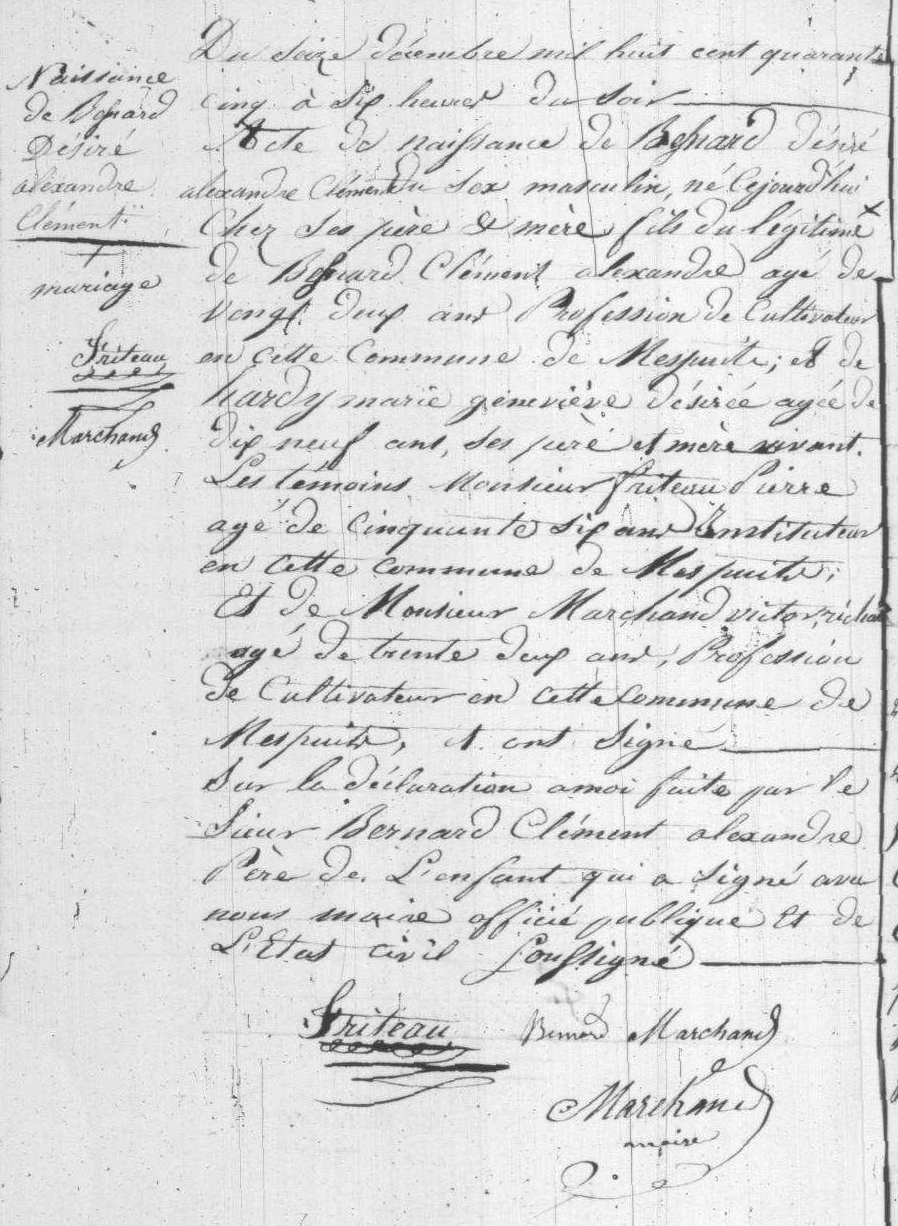 Naissance
de Besnard
Désiré
alexandre
Clément
+
mariage
Friteau
Marchand
Du Seize décembre mil huit cent quarante
cinq à Six heures du Soir
Acte de naissance de Besnard désiré
alexandre Clément du Sex masculin, né Cejourd'hui
Chez Ses père & mère, fils du légitime x
de Besnard Clément alexandre agé de
Vingt deux ans Profession de Cultivateur
en cette Commune de Mespuits; et de
hardy marie géneviève désirée agée de
dix neuf ans, Ses père et mère vivant.
Les témoins Monsieur friteau Pierre
agé de Cinquante Six ans Instituteur
en cette commune de Mespuits;
Et de Monsieur Marchand victor,
agé de trente deux ans, Profession
de Cultivateur en cette Commune de
Mespuits, et ont Signé
Sur la déclaration amoi faite par le
Sieur Bernard Clément alexandre
Père de L'enfant qui a Signé avec
nous maire officié publique Et de
L'Etat civil Soussigné
Friteau Besnard Marchand
Marchand
maire